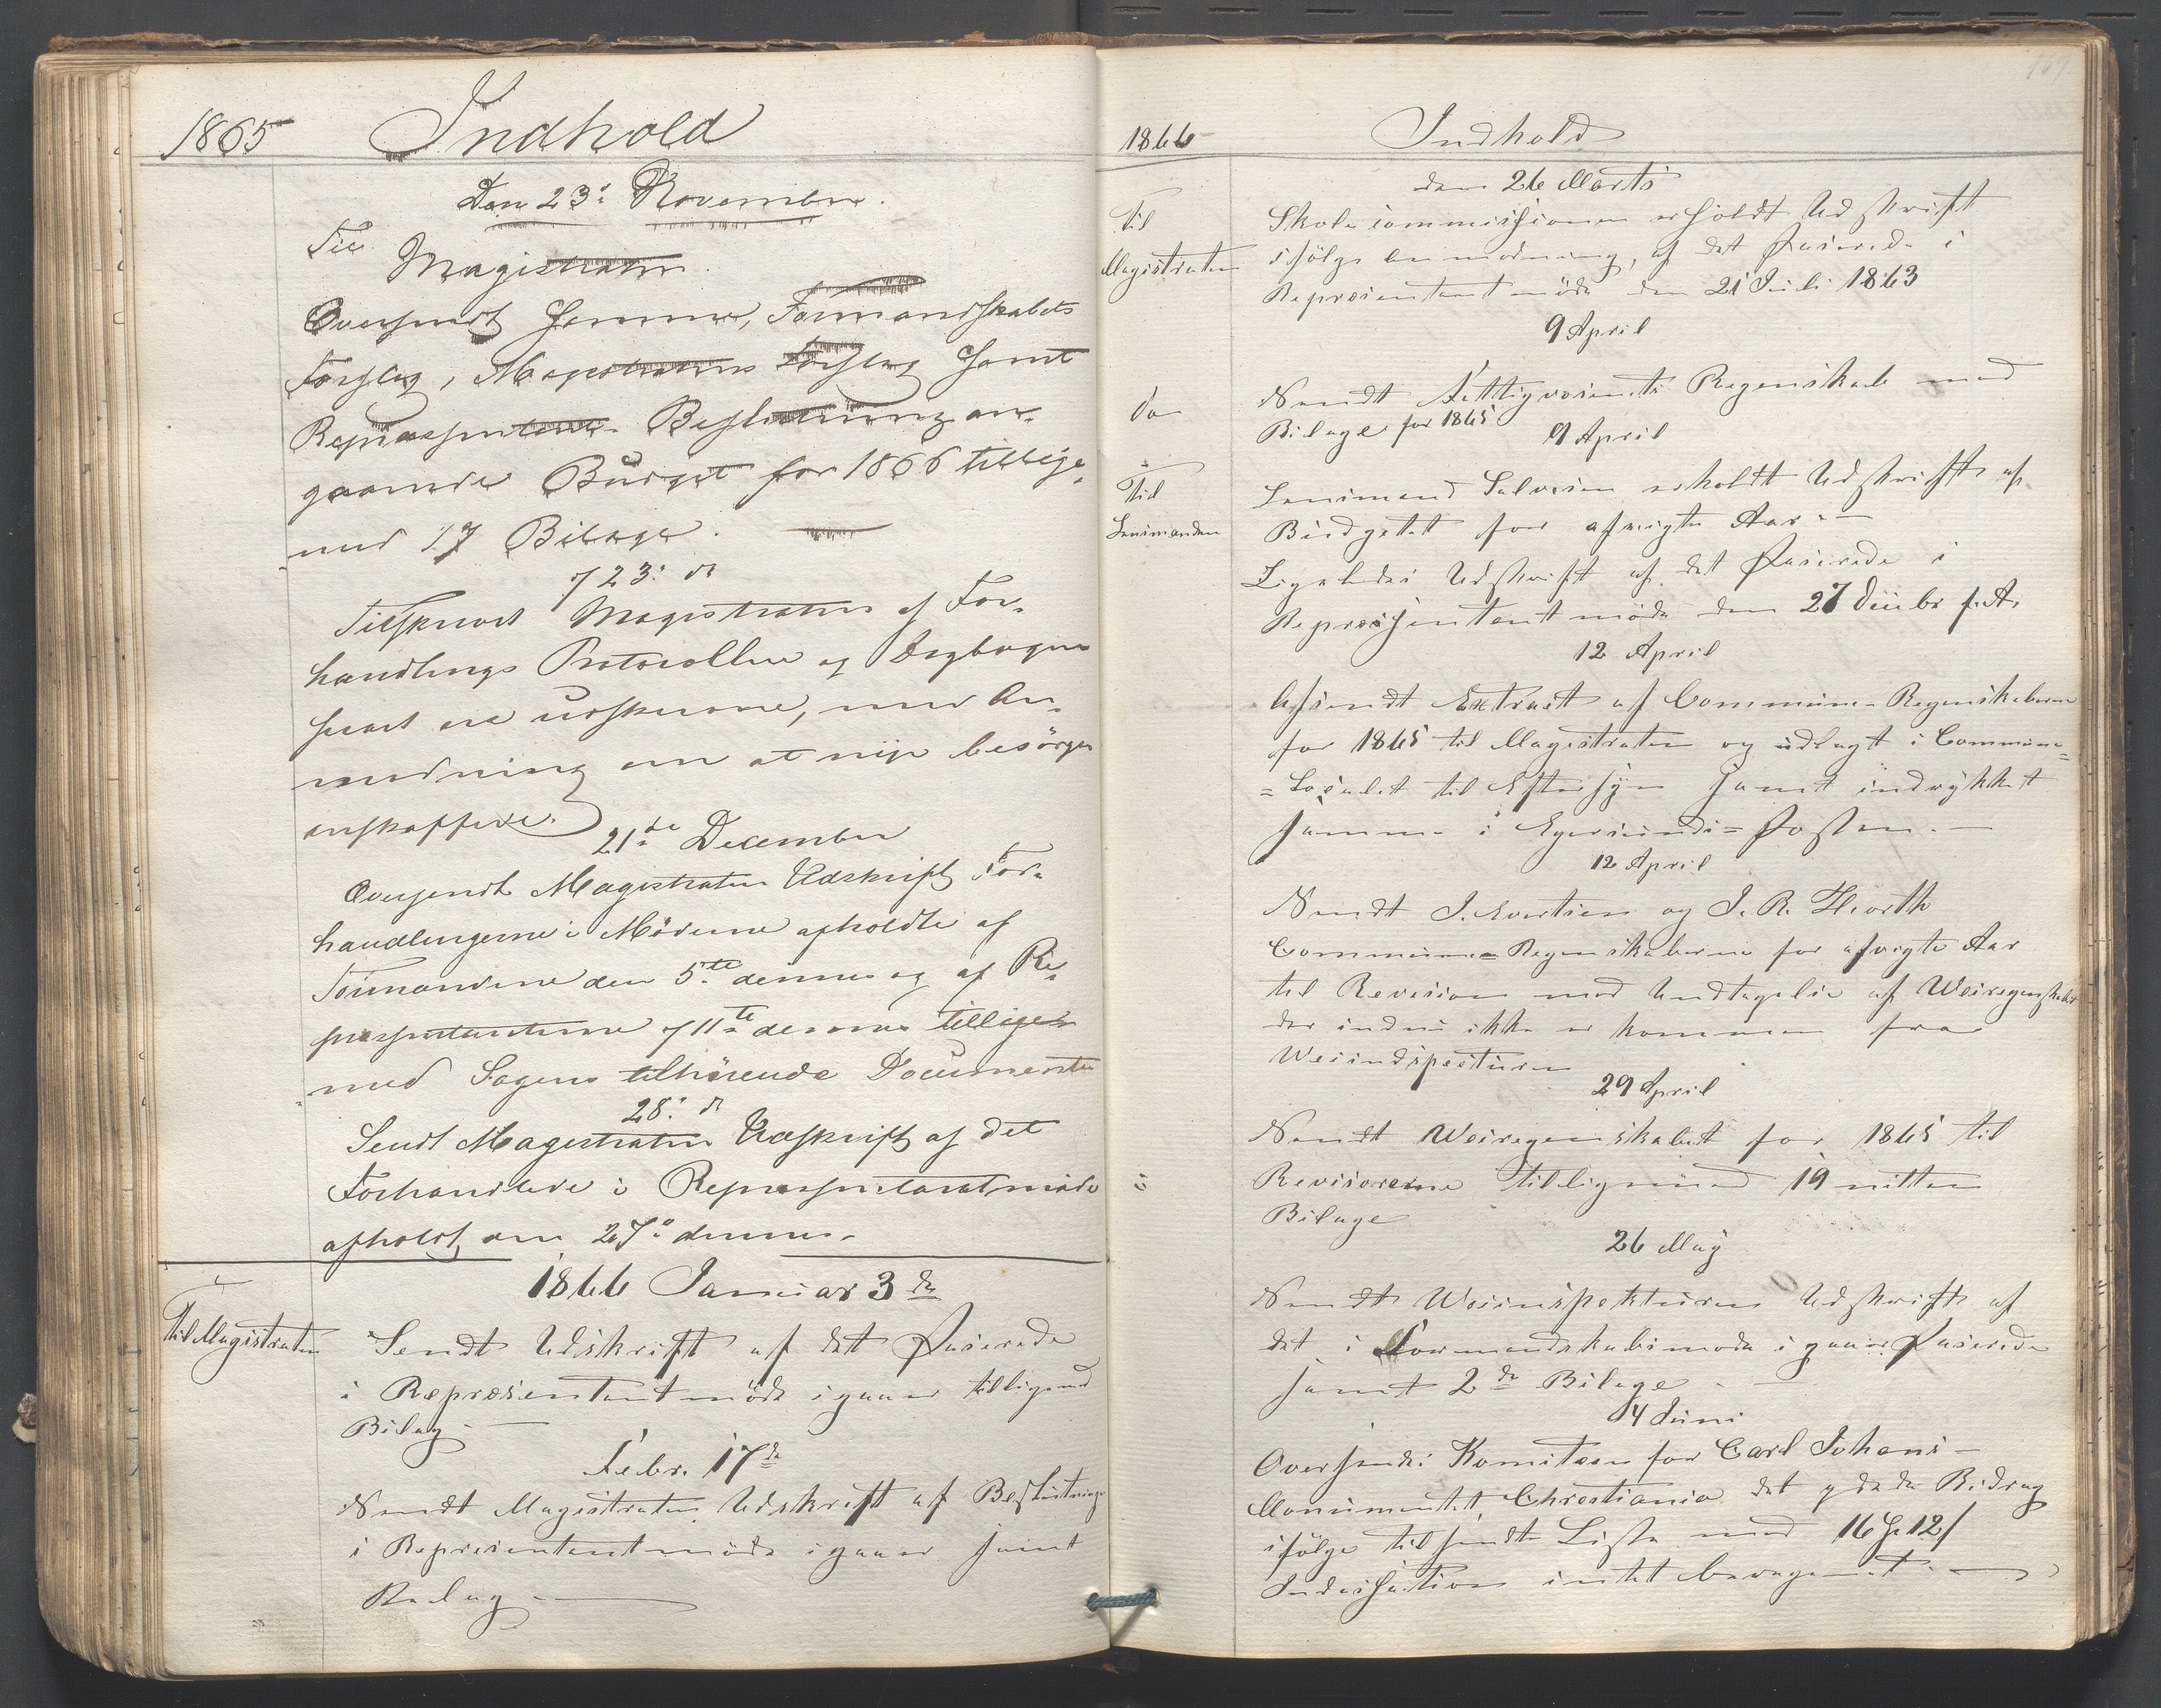 1865 Indhold
Den 23de November.
Til
Magistraten.
Oversendt samme, Formandskabets
Forslag, Magistratens Forslag samt
Repræsentant. Beslutning an-
gaaende Büdget for 1866 tillige-
med 17 Bilage.
/ 23: d
Tilskrevet Magistraten af For-
handlings Protocollen og Dagbogen
snart ere udskrevne, med An-
modning om at nije besörges
anskaffede.
21de December
Oversendt Magistraten Udskrift For-
handlingerne i Möderne afholdte af
Formændene den 5te dennes og af Re-
præsentanterne / 11te dennes tillige-
med Sagens tilhörende Documenter
28: d
Sendt Magistraten Udskrift af det
Forhandlede i Repræsentantmöde
afholdt den 27de dennes.
1866 Januar 3de
Til Magistraten Sendt Udskrift af det Passerede
i Repræsentantmöde igaar tilligemed
Bilag —
Febr. 17de
Sendt Magistraten Udskrift af Beslutninger
i Repræsentantmöde igaar samt
Bilag —
169
1866 Indhold
den 26 Marts
Til Magistraten
Skolecommissionen erholdt Udskrift
ifölge anmodning, af det Passerede i
Repræsentantmöde den 21 Juli 1863
9 April
do Sendt Fattigvæsenets Regenskab med
Bilage for 1865
9 April
Til Lensmanden
Lensmand Salvesen erholdt Udskrift af
Büdgetet for afvigte Aar. —
Ligeledes Udskrift af det Passerede i
Repræsentantmöde den 27 Decbr f. A.
12 April
Afsendt Extract af Commune-Regenskaberne
for 1865 til Magistraten og üdlagt i Commune=
=Localet til Eftersÿn samt indrykket
samme i Egersunds=Posten. —
12 April
Sendt J. Evertsen og J. R. Hiorth
Commune=Regenskaberne for afvigte Aar
til Revision med Undtagelse af Weiregenskabet
der endnu ikke er kommen fra
Weiindspecteuren
29 April
Sendt Weiregenskabet for 1865 til
Revisorerne tilligemed 19 nitten
Bilage
26 Maÿ
Sendt Weiinspekteuren Udskrift af
det i Formandskabsmöde igaar Passerede
samt 2de Bilage —
4 Juni
Oversendt Komiteen for Carl Johans-
Monumentet, Christiania det ydede Bidrag
ifölge tilsendte Liste med 16 Sp 12 /